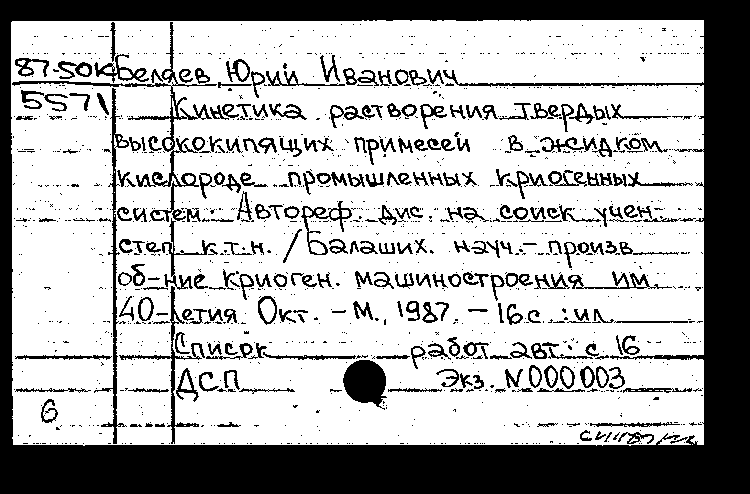 87-50K Беляев, Юрий Иванович
5571 Кинетика растворения твердых
высококипящих примесей в жидком
кислороде промышленных криогенных
систем. Автореф. дис. на соиск учен.
степ. к.т.н. /Балаших. науч.-произв
об-ние криоген. машиностроения им.
40-летия Окт. -М., 1987. -16с.:ил.
Список работ авт.: с 16
ДСП Экз. N000003
6